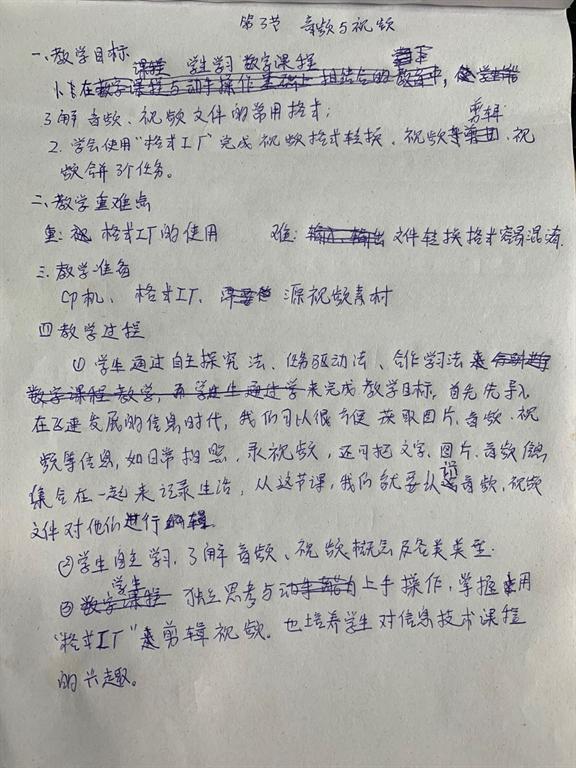 第3节 音频与视频
一、教学目标
课程 学生学习数字课程
1、在数字课程与动手操作基础上相结合的教学中，使学生能
了解音频、视频文件的常用格式；
剪辑
2. 学会使用"格式工厂"完成视频格式转换、视频、视
频合并3个任务。
二、教学重难点
重：格式工厂的使用 难：输入输出文件转换格式容易混淆
三、教学准备
CP机、格式工厂、源视频素材
四 教学过程
① 学生通过自主探究法、任务驱动法、合作学习法来
数字课程教学，再学生生通过学来完成教学目标，首先先导入
在飞速发展的信息时代，我们可以很方便获取图片、音频、视
频等信息，如日常拍照、录视频，还可把文字、图片、音频信息
集合在一起来记录生活，从这节课，我们就要认识音频、视频
文件对他们进行编辑。
②学生自主学习，了解音频、视频概念及各类类型.
学生
③数字课程 独立思考与动手能力上手操作，掌握用
"格式工厂"来剪辑视频。也培养学生对信息技术课程
的兴趣。